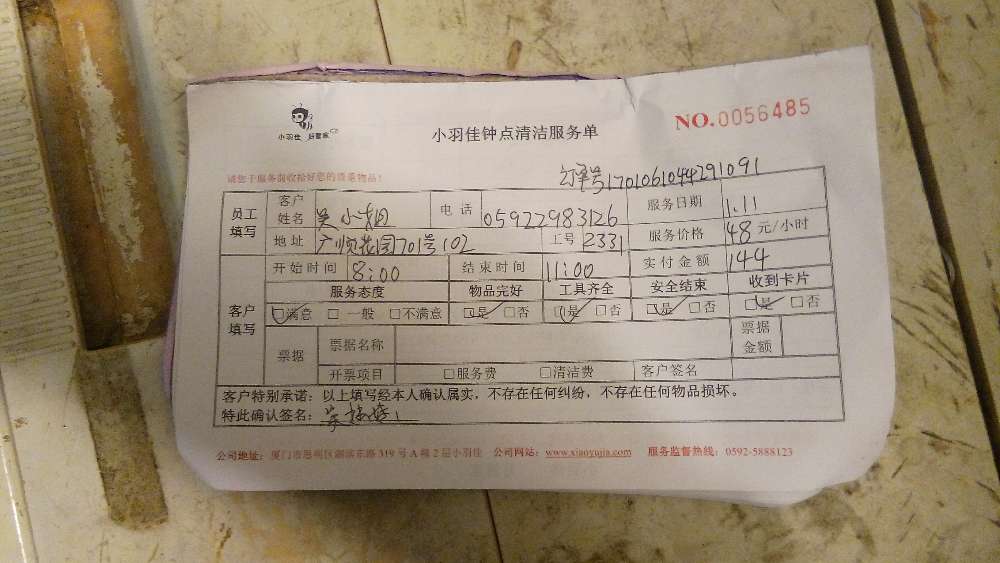 小羽佳 好管家
小羽佳钟点清洁服务单
NO.0056485
请您于服务前收拾好您的贵重物品!
订单号1701061044291091
员工填写 客户姓名 吴小姐 电话 05922983126 服务日期 1.11
地址 广顺花园701号102 工号 2331 服务价格 48元/小时
客户填写 开始时间 8:00 结束时间 11:00 实付金额 144
服务态度 物品完好 工具齐全 安全结束 收到卡片
☑满意 □一般 □不满意 ☑是 □否 ☑是 □否 ☑是 □否 ☑是 □否
票据 票据名称 票据金额
开票项目 □服务费 □清洁费 客户签名
客户特别承诺:以上填写经本人确认属实,不存在任何纠纷,不存在任何物品损坏。
特此确认签名:吴
公司地址:厦门市思明区湖滨东路319号A幢2层小羽佳 公司网站:www.xiaoyujia.com 服务监督热线:0592-5888123